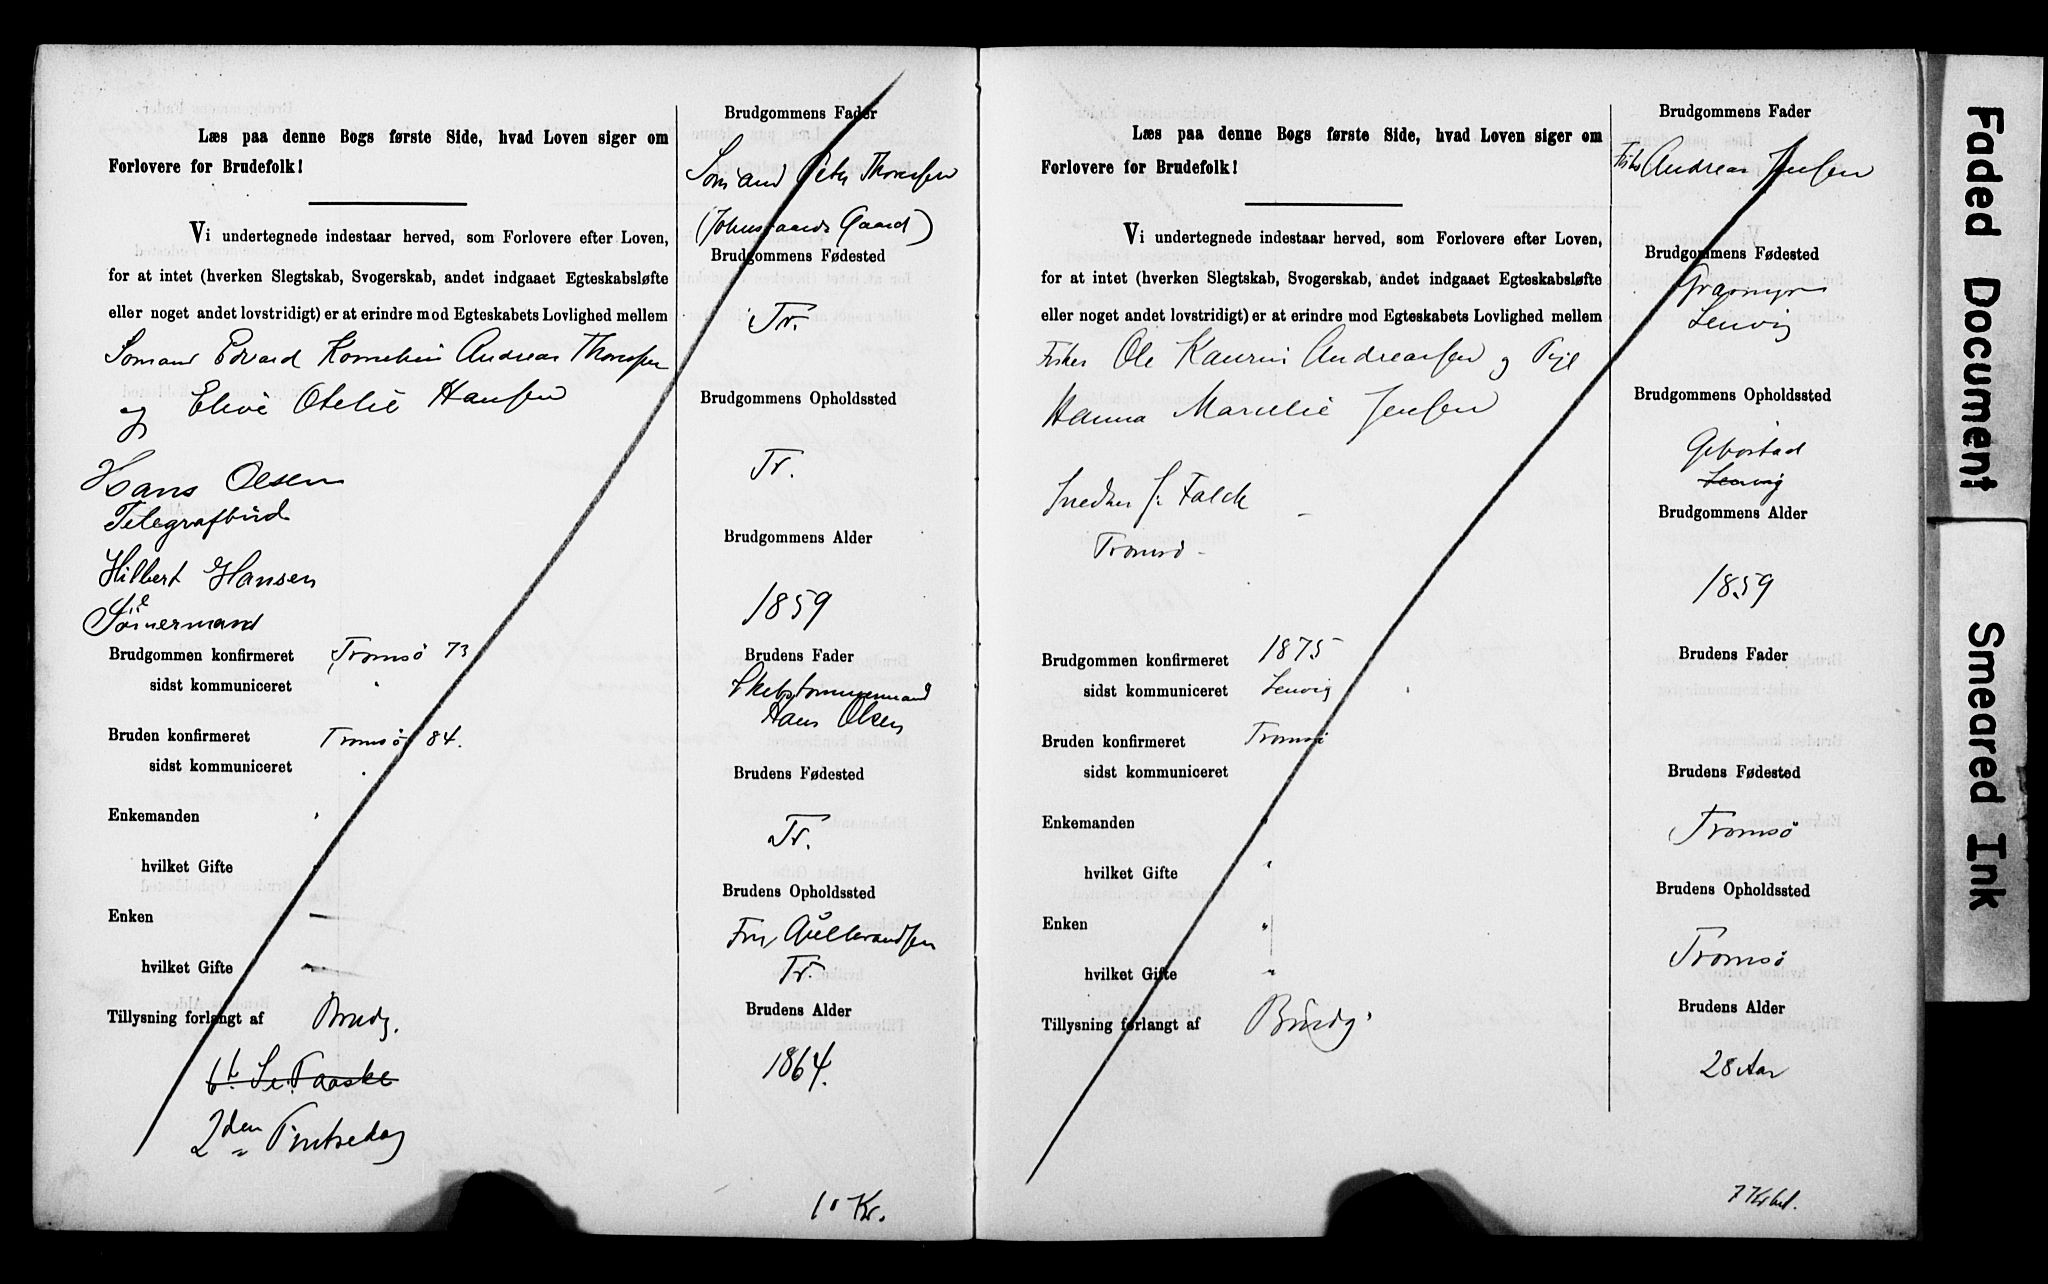 Læs paa denne Bogs første Side, hvad Loven siger om
Forlovere for Brudefolk!
Vi undertegnede indestaar herved, som Forlovere efter Loven,
for at intet (hverken Slegtskab, Svogerskab, andet indgaaet Egteskabsløfte
eller noget andet lovstridigt) er at erindre mod Egteskabets Lovlighed mellem
Sømand Edvard Kornelius Andreas Thomsen
og Otelie Hansen
Hans Olsen
Telegrafbud
Hilbert Hansen
Brudgommen konfirmeret Tromsø 73
sidst kommuniceret
Bruden konfirmeret Tromsø 84.
sidst kommuniceret
Enkemanden
hvilket Gifte
Enken
hvilket Gifte
Tillysning forlangt af Brudg.
2den Pintsedag
Brudgommens Fader
Sømand Peter Thomsen
Gaard)
Brudgommens Fødested
Tr.
Brudgommens Opholdssted
Tr.
Brudgommens Alder
1859
Brudens Fader
Skibstømmermand
Hans Olsen
Brudens Fødested
Tr.
Brudens Opholdssted
Tr.
Brudens Alder
1864.
10 Kr.
Læs paa denne Bogs første Side, hvad Loven siger om
Forlovere for Brudefolk!
Vi undertegnede indestaar herved, som Forlovere efter Loven,
for at intet (hverken Slegtskab, Svogerskab, andet indgaaet Egteskabsløfte
eller noget andet lovstridigt) er at erindre mod Egteskabets Lovlighed mellem
Fisker Ole Kaurin Andreassen og Pige
Hanna Jensen
Snedker J. Falck
Tromsø
Brudgommen konfirmeret 1875
sidst kommuniceret Lenvig
Bruden konfirmeret Tromsø
sidst kommuniceret
Enkemanden "
hvilket Gifte "
Enken "
hvilket Gifte "
Tillysning forlangt af Brudg.
Brudgommens Fader
Fisker Andreas Jensen
Brudgommens Fødested
Græsmyr
Lenvig
Brudgommens Opholdssted
Gibostad
Lenvig
Brudgommens Alder
1859
Brudens Fader
Brudens Fødested
Tromsø
Brudens Opholdssted
Tromsø
Brudens Alder
28 Aar
7 Kr bet.
Faded Document
Smeared Ink